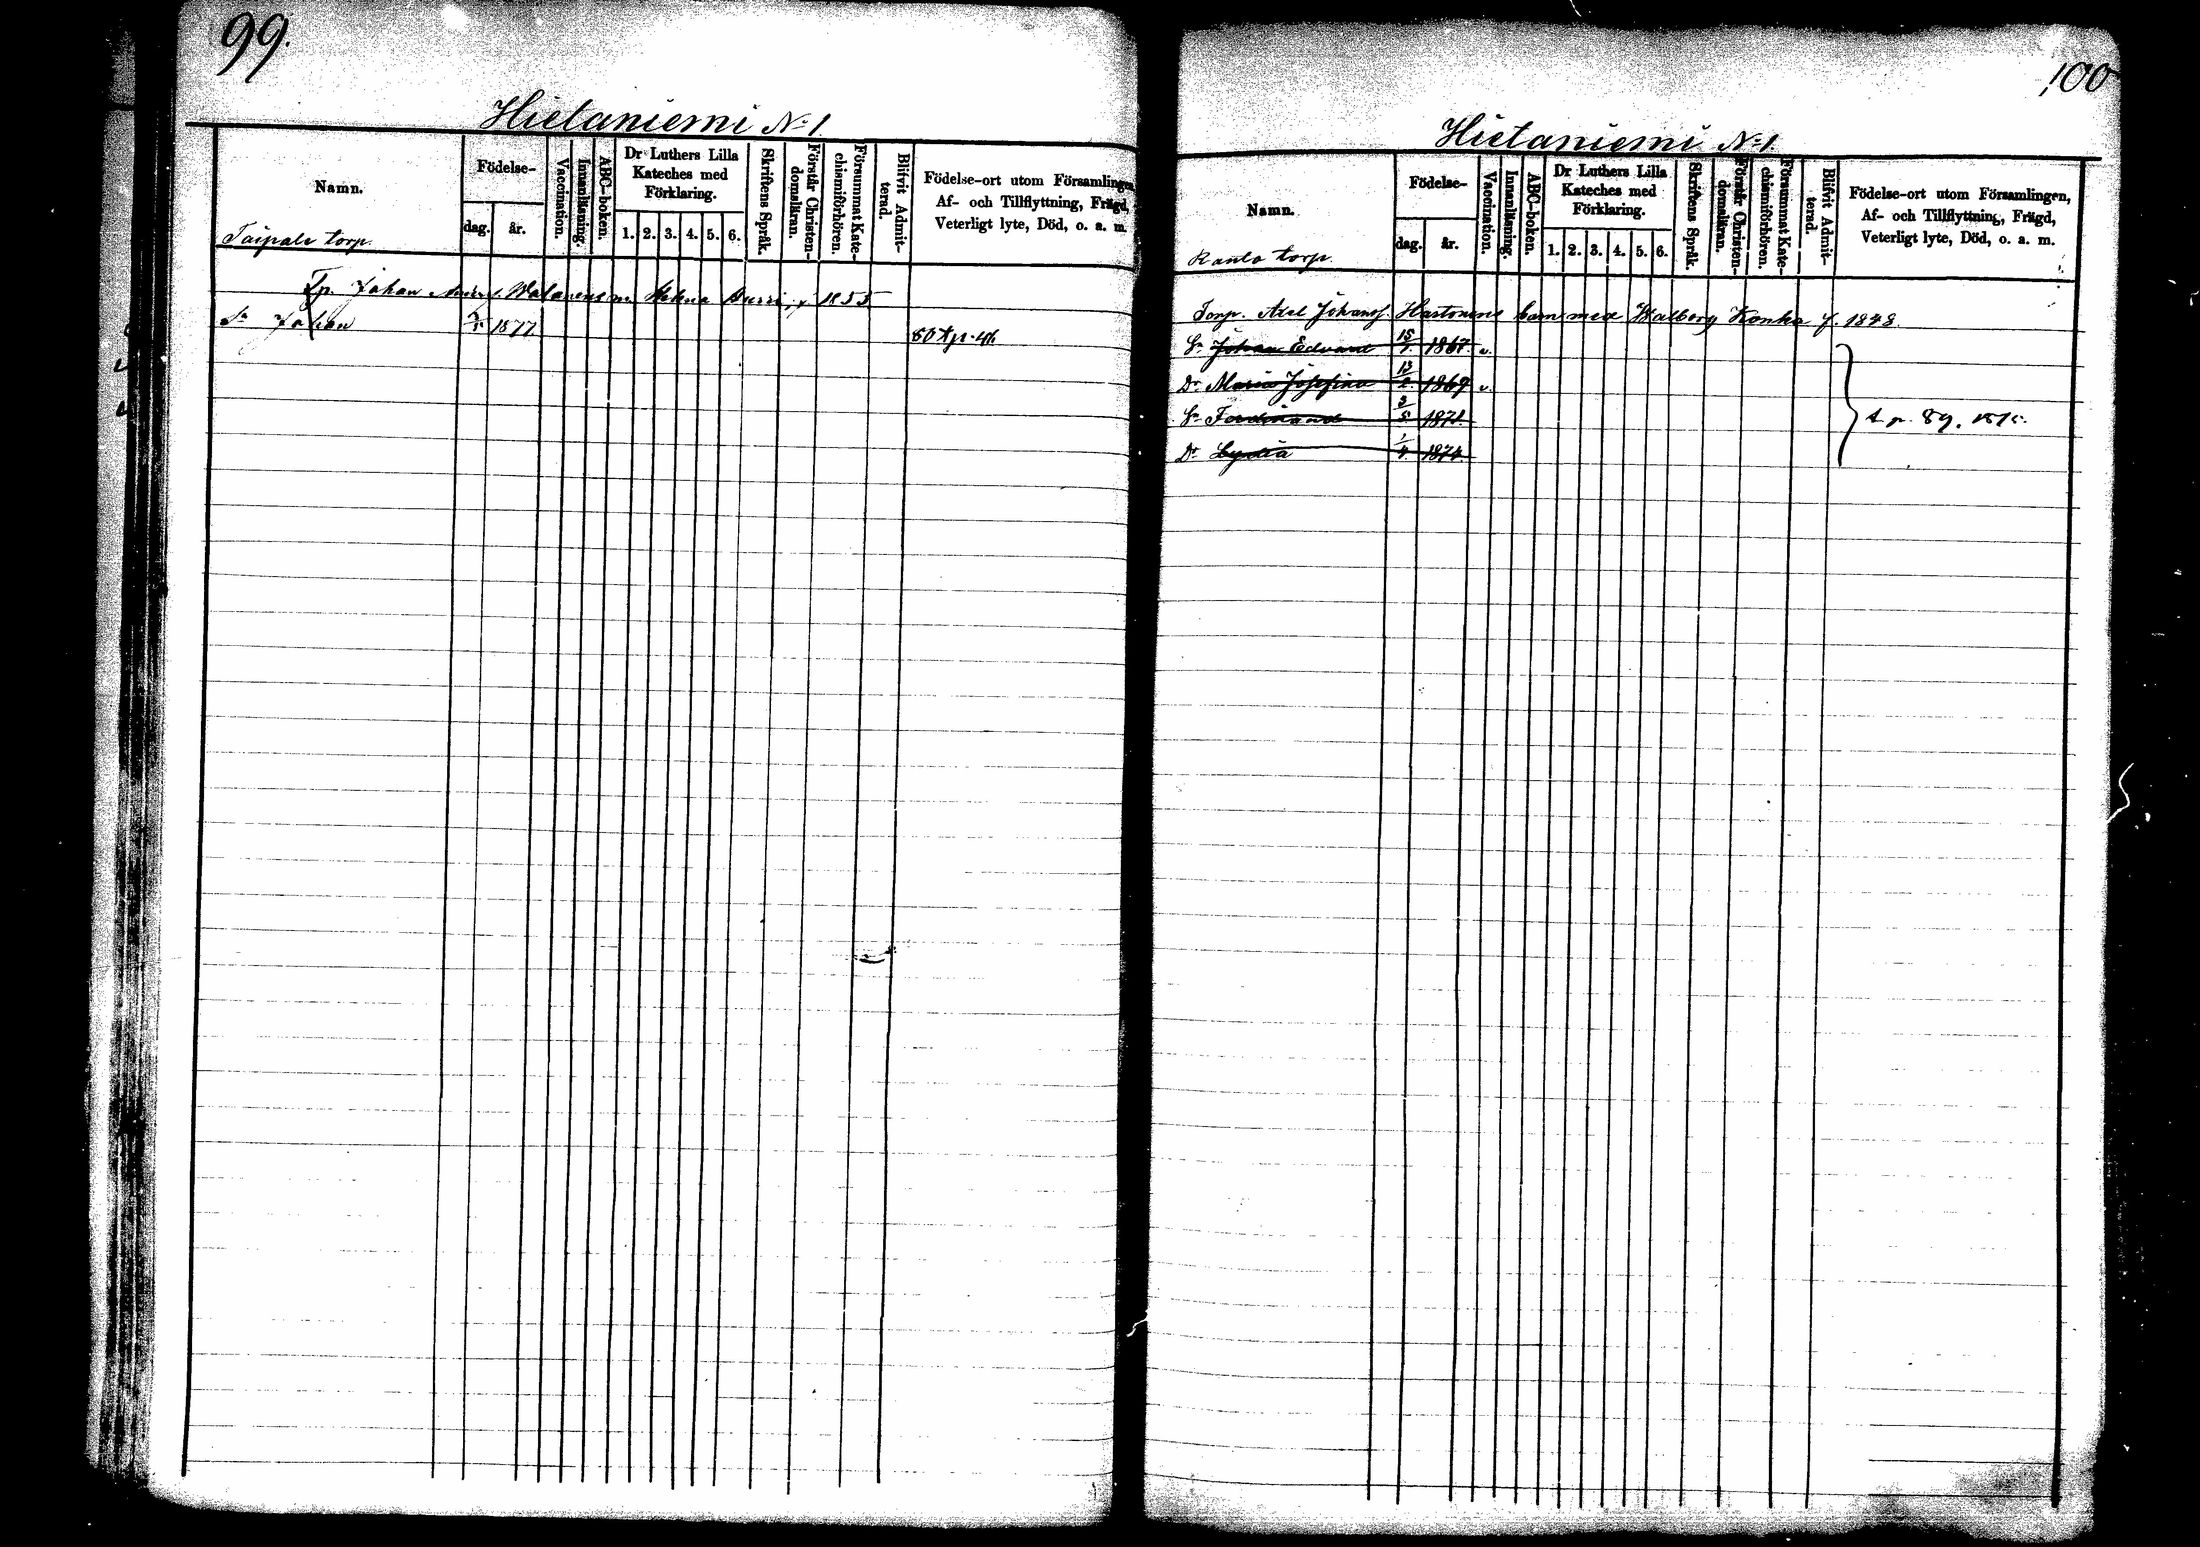 99.
Hietaniemi No 1
Namn.
Födelse-
dag.
år.
Vaccination.
Innanläsning.
ABC-boken.
Dr Luthers Lilla Kateches med Förklaring.
1. 2. 3. 4. 5. 6.
Skriftens Språk.
Förstår Christendomsläran.
Försummat Katechismiförhören.
Blifvit Admitterad.
Födelse-ort utom Församlingen,
Af- och Tillflyttning, Frägd,
Veterligt lyte, Död, o. a. m.
Taipale torp.
Tp. Johan Helena f 1855
Sn Johan 1877
100
Hietaniemi No 1
Namn.
Födelse-
dag.
år.
Vaccination.
Innanläsning.
ABC-boken.
Dr Luthers Lilla Kateches med Förklaring.
1. 2. 3. 4. 5. 6.
Skriftens Språk.
Förstår Christendomsläran.
Försummat Katechismiförhören.
Blifvit Admitterad.
Födelse-ort utom Församlingen,
Af- och Tillflyttning, Frägd,
Veterligt lyte, Död, o. a. m.
torp.
Torp. Axel Johanss. Hartonens barn med Walborg Konka f. 1848.
Sn Johan Edvard 1867. v.
Dr Maria Josefina 13/2 1869 v.
Sn Ferdinand 3/5 1871.
Dr Lydia 1/4 1874.
t. p. 89.